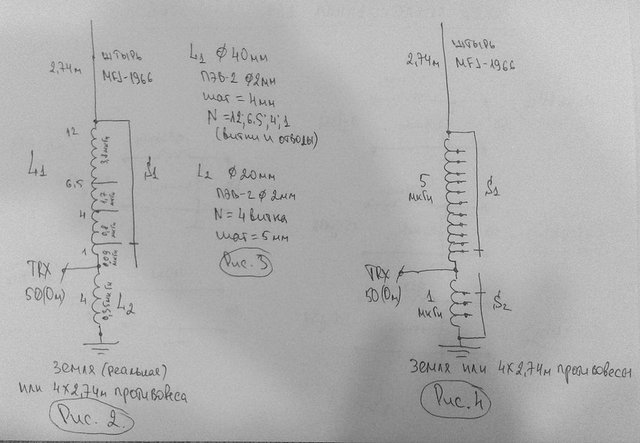 2,74м
ШТЫРЬ
MFJ-1966
12
3,2мкГн
L1
S1
6.5
1,7
мкГн
4
0,8
мкГн
1
0,09
мкГн
TRX
50(Ом)
4
0,53мкГн
L2
ЗЕМЛЯ (реальная)
или 4x2,74м противовеса
Рис. 2.
L1 Ф40мм
ПЭВ-2 Ф2мм
шаг = 4мм
N = 12; 6.5; 4; 1
(витки и отводы)
L2 Ф20мм
ПЭВ-2 Ф2мм
N = 4 витка
шаг = 5мм
Рис. 3
2,74м
ШТЫРЬ
MFJ-1966
5
мкГн
S1
TRX
50(Ом)
1
мкГн
S2
ЗЕМЛЯ или 4x2,74м противовесы
Рис. 4